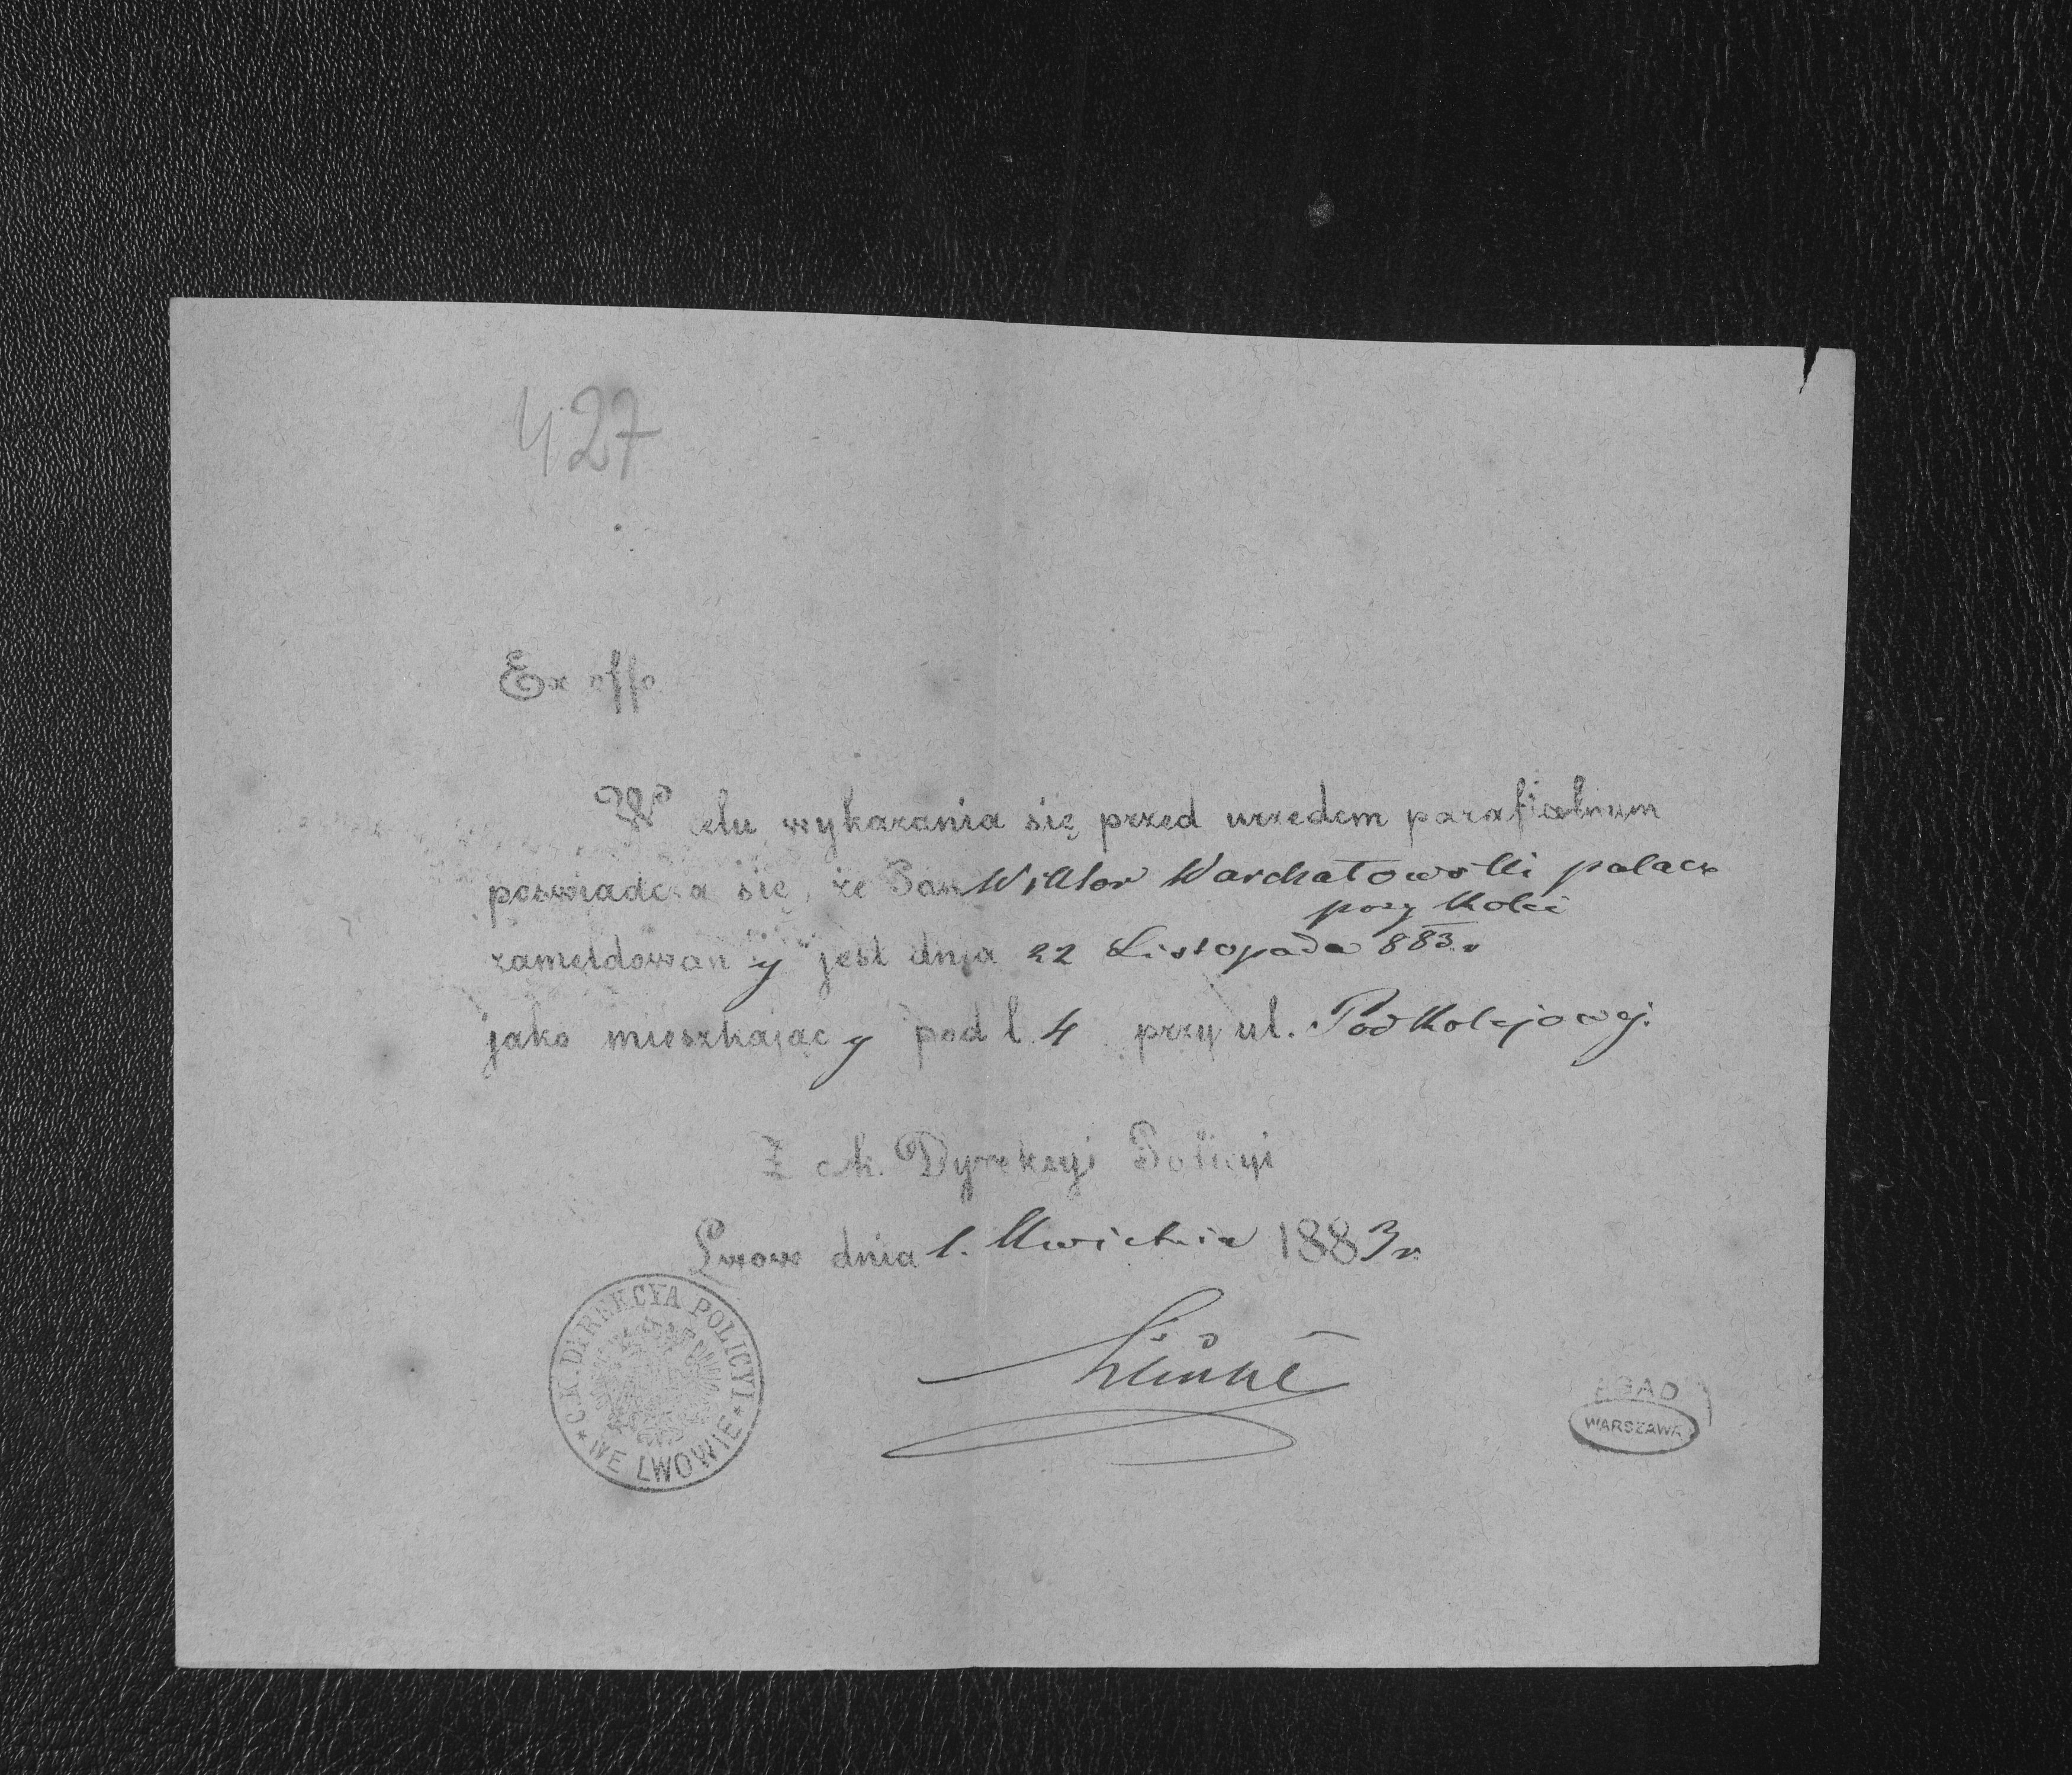 427
Ex offo
W celu wykazania się przed urzedem parafialnum
poswiadcza się, że Pan Wiktor Warchatowski palacz
przy Kolei
zameldowany jest dnia 22 Listopada 883 r
jako mieszkający pod l. 4 przy ul. Podkolejowej.
Z c.k. Dyrekcyi Policyi
Lwow dnia 1. Kwietnia 1883 r.
C.K. DYREKCYA POLICYI
* WE LWOWIE *
AGAD
WARSZAWA